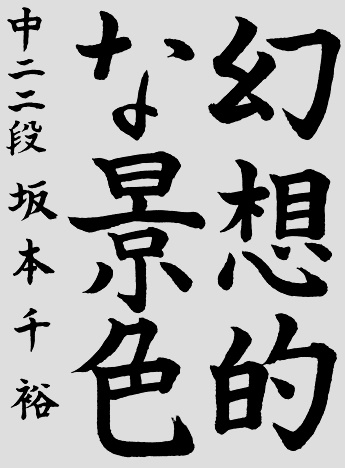 幻想的
な景色
中二二段 坂本千裕